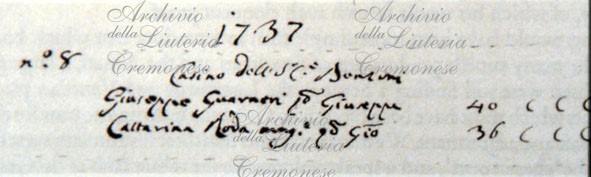 Archivio della Liuteria Cremonese
Archivio della Liuteria Cremonese
1737
n.º 8 Casino dell SS.ri
Giuseppe Guarneri qd Giuseppe 40 C C C
Cattarina Roda mog.e qd Gio 36 C C C
Archivio della Liuteria Cremonese